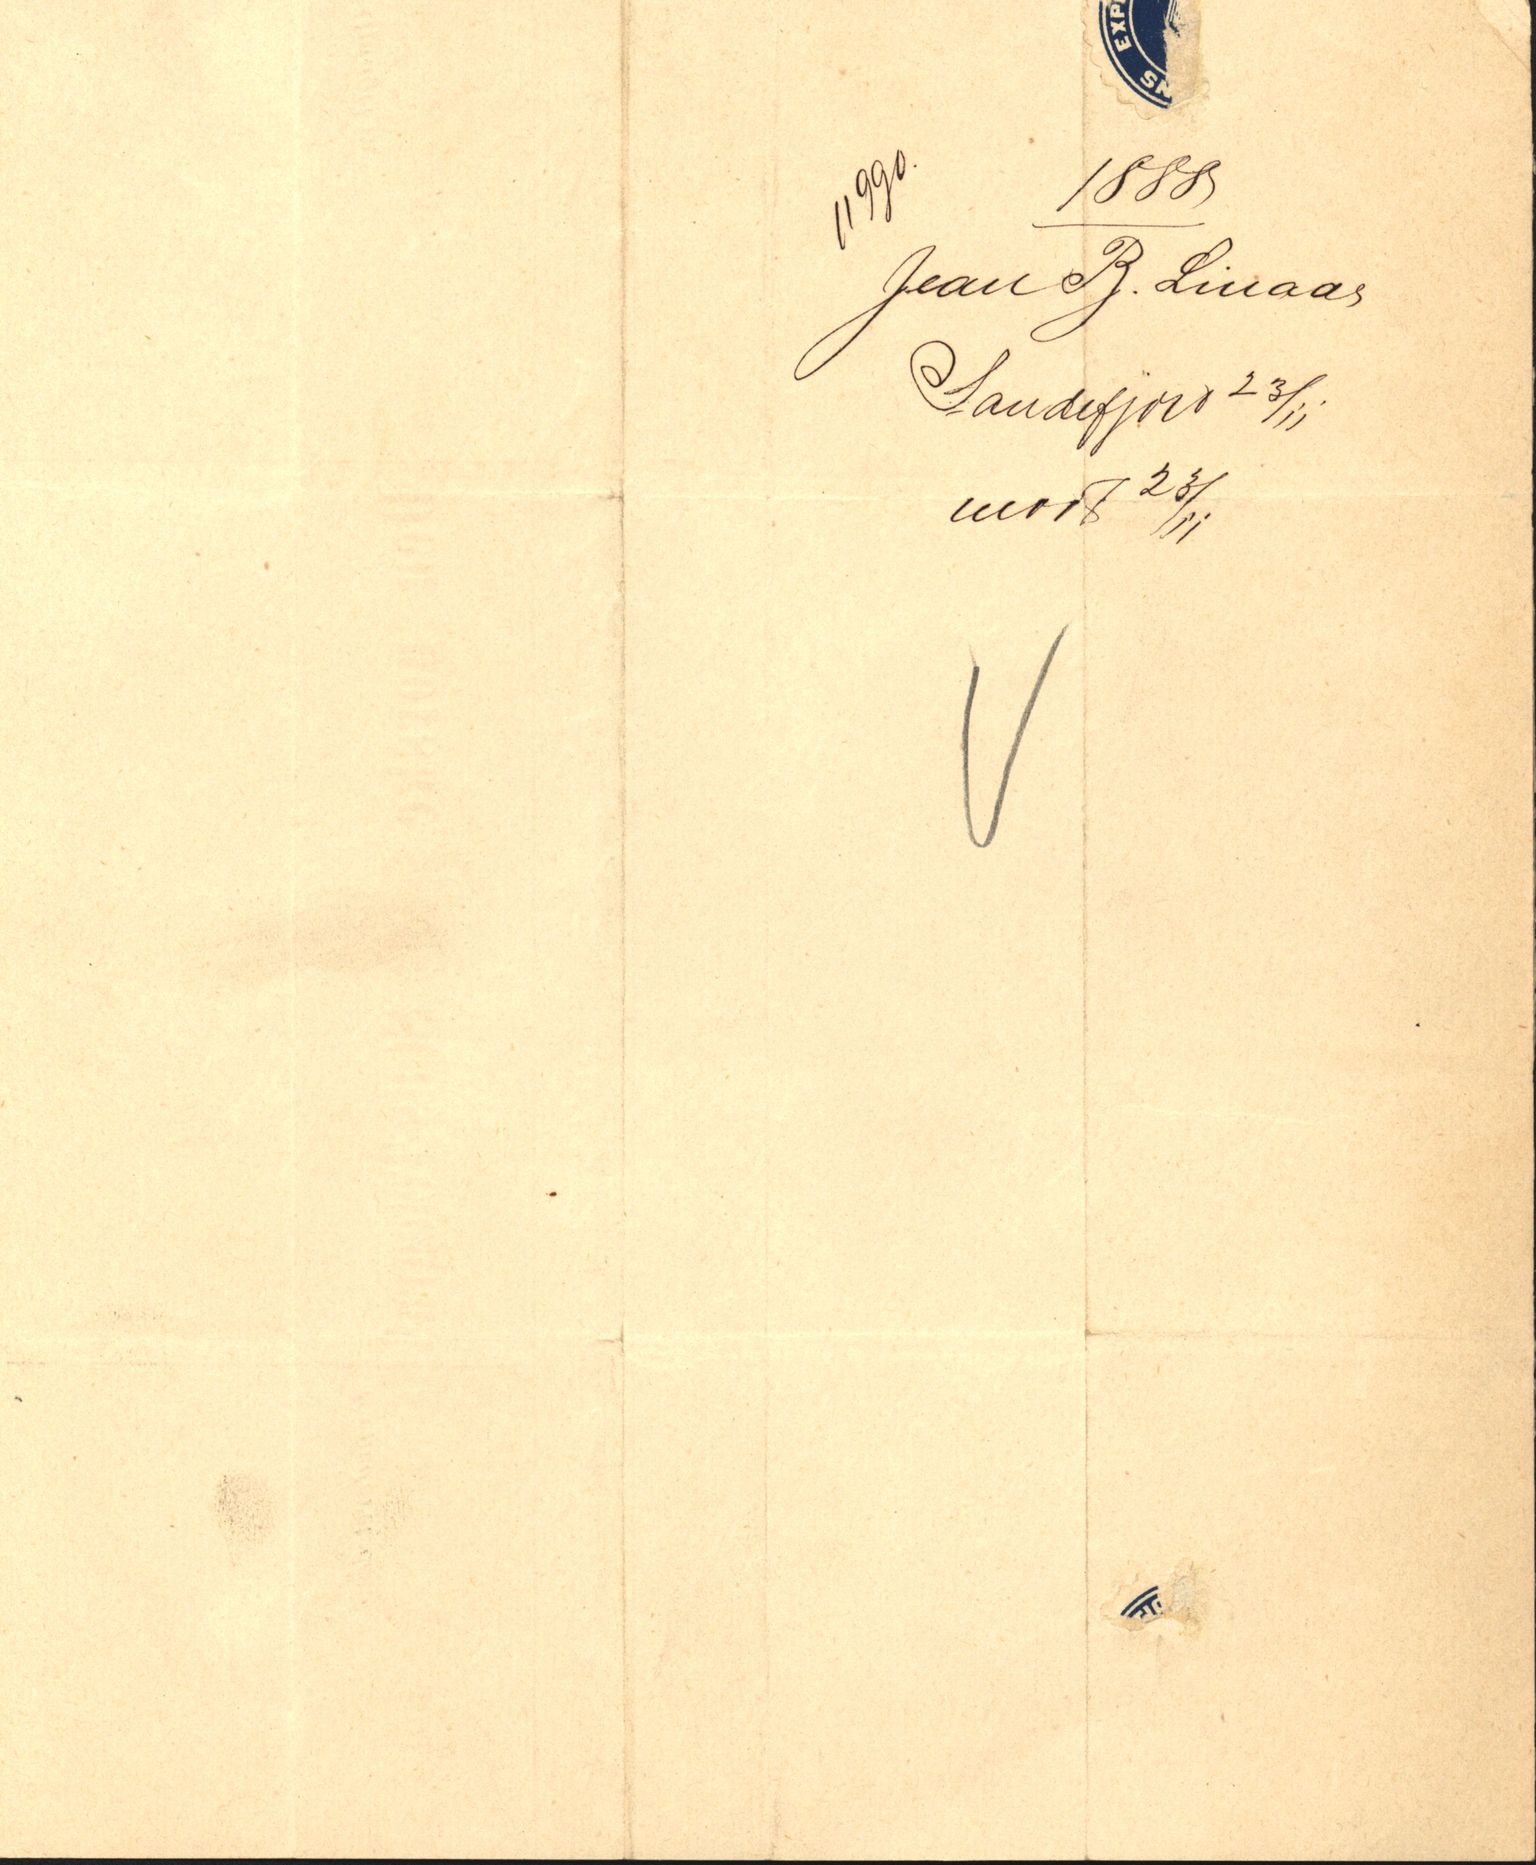 EXP
1888
11990.
Jean B. Linaae
Sandefjord 23/11
modt 23/11